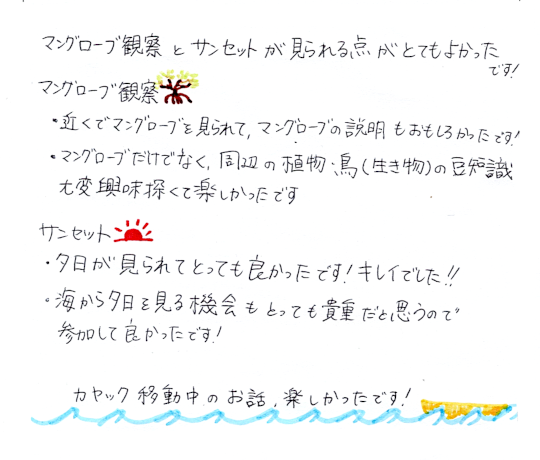 マングローブ観察 と サンセットが 見られる点 がとてもよかった
です!
マングローブ観察
・近くでマングローブを見られて、マングローブの説明もおもしろかったです!
・マングローブだけでなく、周辺の植物・鳥(生き物)の豆知識
大変興味深くて楽しかったです
サンセット
・夕日が見られてとっても良かったです!キレイでした!!
・海から夕日を見る機会もとっても貴重だと思うので
参加して良かったです!
カヤック移動中のお話、楽しかったです!